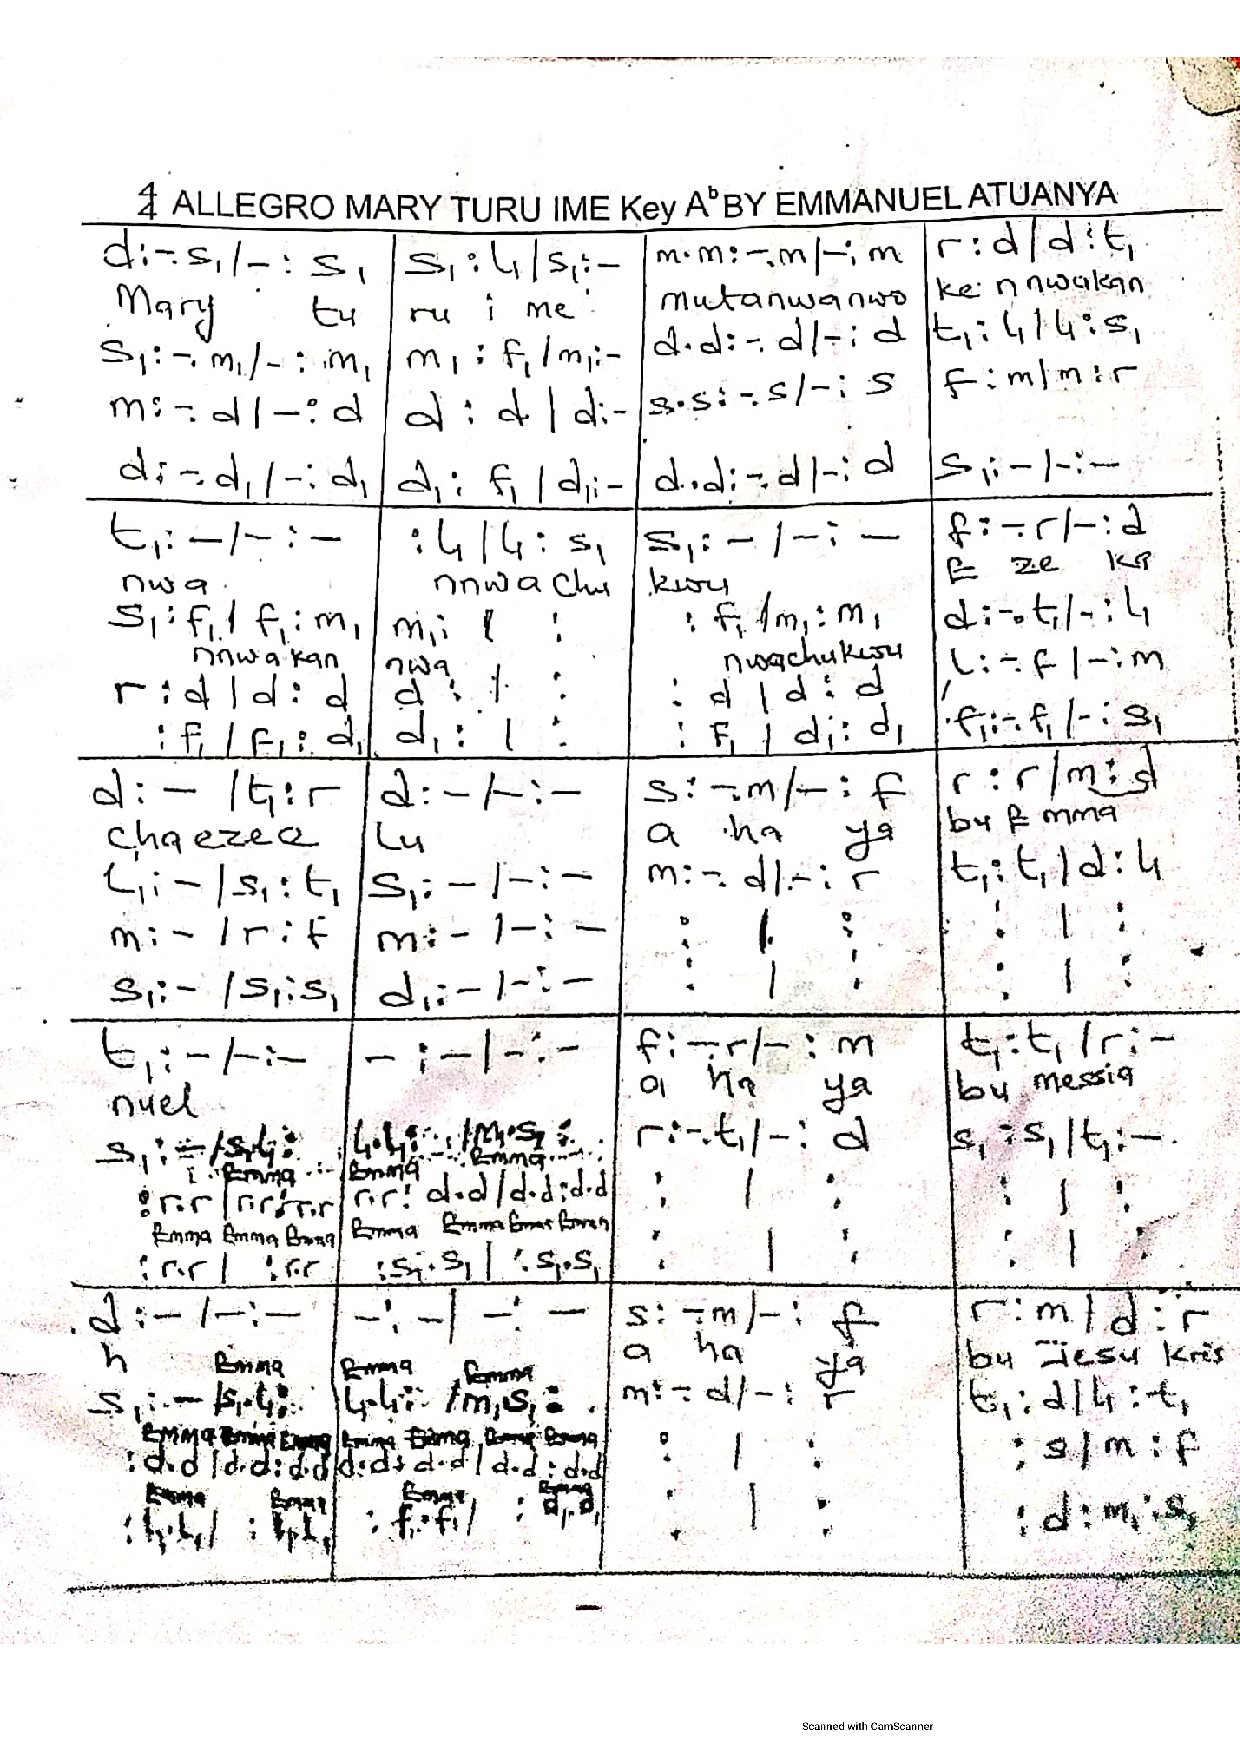 4/4 ALLEGRO MARY TURU IME Key Aᵇ BY EMMANUEL ATUANYA
d:-.s₁/-:s₁ | s₁:l₁/s₁:- | m.m:-.m/-:m | r:d/d:t₁
Mary tu | ru i me | mutanwanwo | ke nnwakan
s₁:-.m₁/-:m₁ | m₁:f₁/m₁:- | d.d:-.d/-:d | t₁:l₁/l₁:s₁
m:-.d/-:d | d:d/d:- | s.s:-.s/-:s | f:m/m:r
d:-.d₁/-:d₁ | d₁:f₁/d₁:- | d.d:-.d/-:d | s₁:-/-:-
t₁:-/-:- | :l₁/l₁:s₁ | s₁:-/-:- | f:-.r/-:d
nwa | nnwachu | kwu | E ze ka
s₁:f₁/f₁:m₁ | m₁: / : | :f₁/m₁:m₁ | d:-.t₁/-:l₁
nnwakan | nwa | nwachukwu
r:d/d:d | d: / : | :d/d:d | l:-.f/-:m
:f₁/f₁:d₁ | d₁: / : | :f₁/d₁:d₁ | f₁:-.f₁/-:s₁
d:-/t₁:r | d:-/-:- | s:-.m/-:f | r:r/m:d
chaezee | lu | a ha ya | bu Emma
l₁:-/s₁:t₁ | s₁:-/-:- | m:-.d/-:r | t₁:t₁/d:l₁
m:-/r:f | m:-/-:- | : / : | : / :
s₁:-/s₁:s₁ | d₁:-/-:- | : / : | : / :
t₁:-/-:- | -:-/-:- | f:-.r/-:m | t₁:t₁/r:-
nuel | a ha ya | bu messia
s₁:-/s₁.l₁: | l₁.l₁: /m₁.s₁: | r:-.t₁/-:d | s₁:s₁/t₁:-
Emma | Emma Emma
:r.r/r.r:r.r | r.r:d.d/d.d:d.d | : / : | : / :
Emma Emma Emma | Emma Emma Emma Emma
:r.r/ :r.r | :s₁.s₁/ :s₁.s₁ | : / : | : / :
d:-/-:- | -:-/-:- | s:-.m/-:f | r:m/d:r
h Emma | Emma Emma | a ha ya | bu Jesu Kris
s₁:-/s₁.l₁: | l₁.l₁: /m₁.s₁: | m:-.d/-:r | t₁:d/l₁:t₁
Emma Emma Emma | Emma Emma Emma Emma
:d.d/d.d:d.d | d.d:d.d/d.d:d.d | : / : | :s/m:f
Emma Emma | Emma Emma
:l₁.l₁/ :l₁.l₁ | :f₁.f₁/ :d₁.d₁ | : / : | :d:m₁:s₁
Scanned with CamScanner